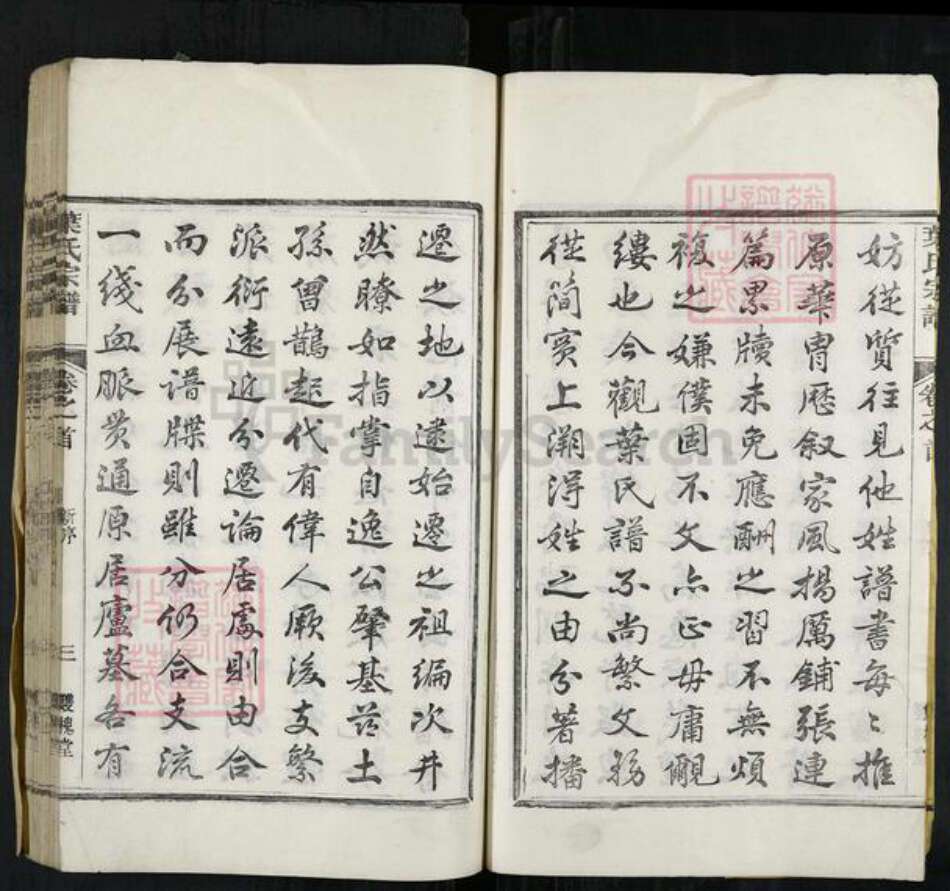 妨從質往見他姓譜書每〻推
原華胄歷叙家風揚厲鋪張連
篇累牘未免應酬之習不無煩
複之嫌僕固不文亦正毋庸覼
縷也今觀葉氏譜不尚繁文務
從簡實上溯得姓之由分著播
遷之地以逮始遷之祖編次井
然瞭如指掌自逸公肇基茲土
孫曾鵲起代有偉人厥後支繁
派衍遠近分遷論居處則由合
而分展譜牒則雖分仍合支流
一綫血脈貫通原居廬墓各有
葉氏宗譜
卷之首
新序
三
雙槐堂
FamilySearch